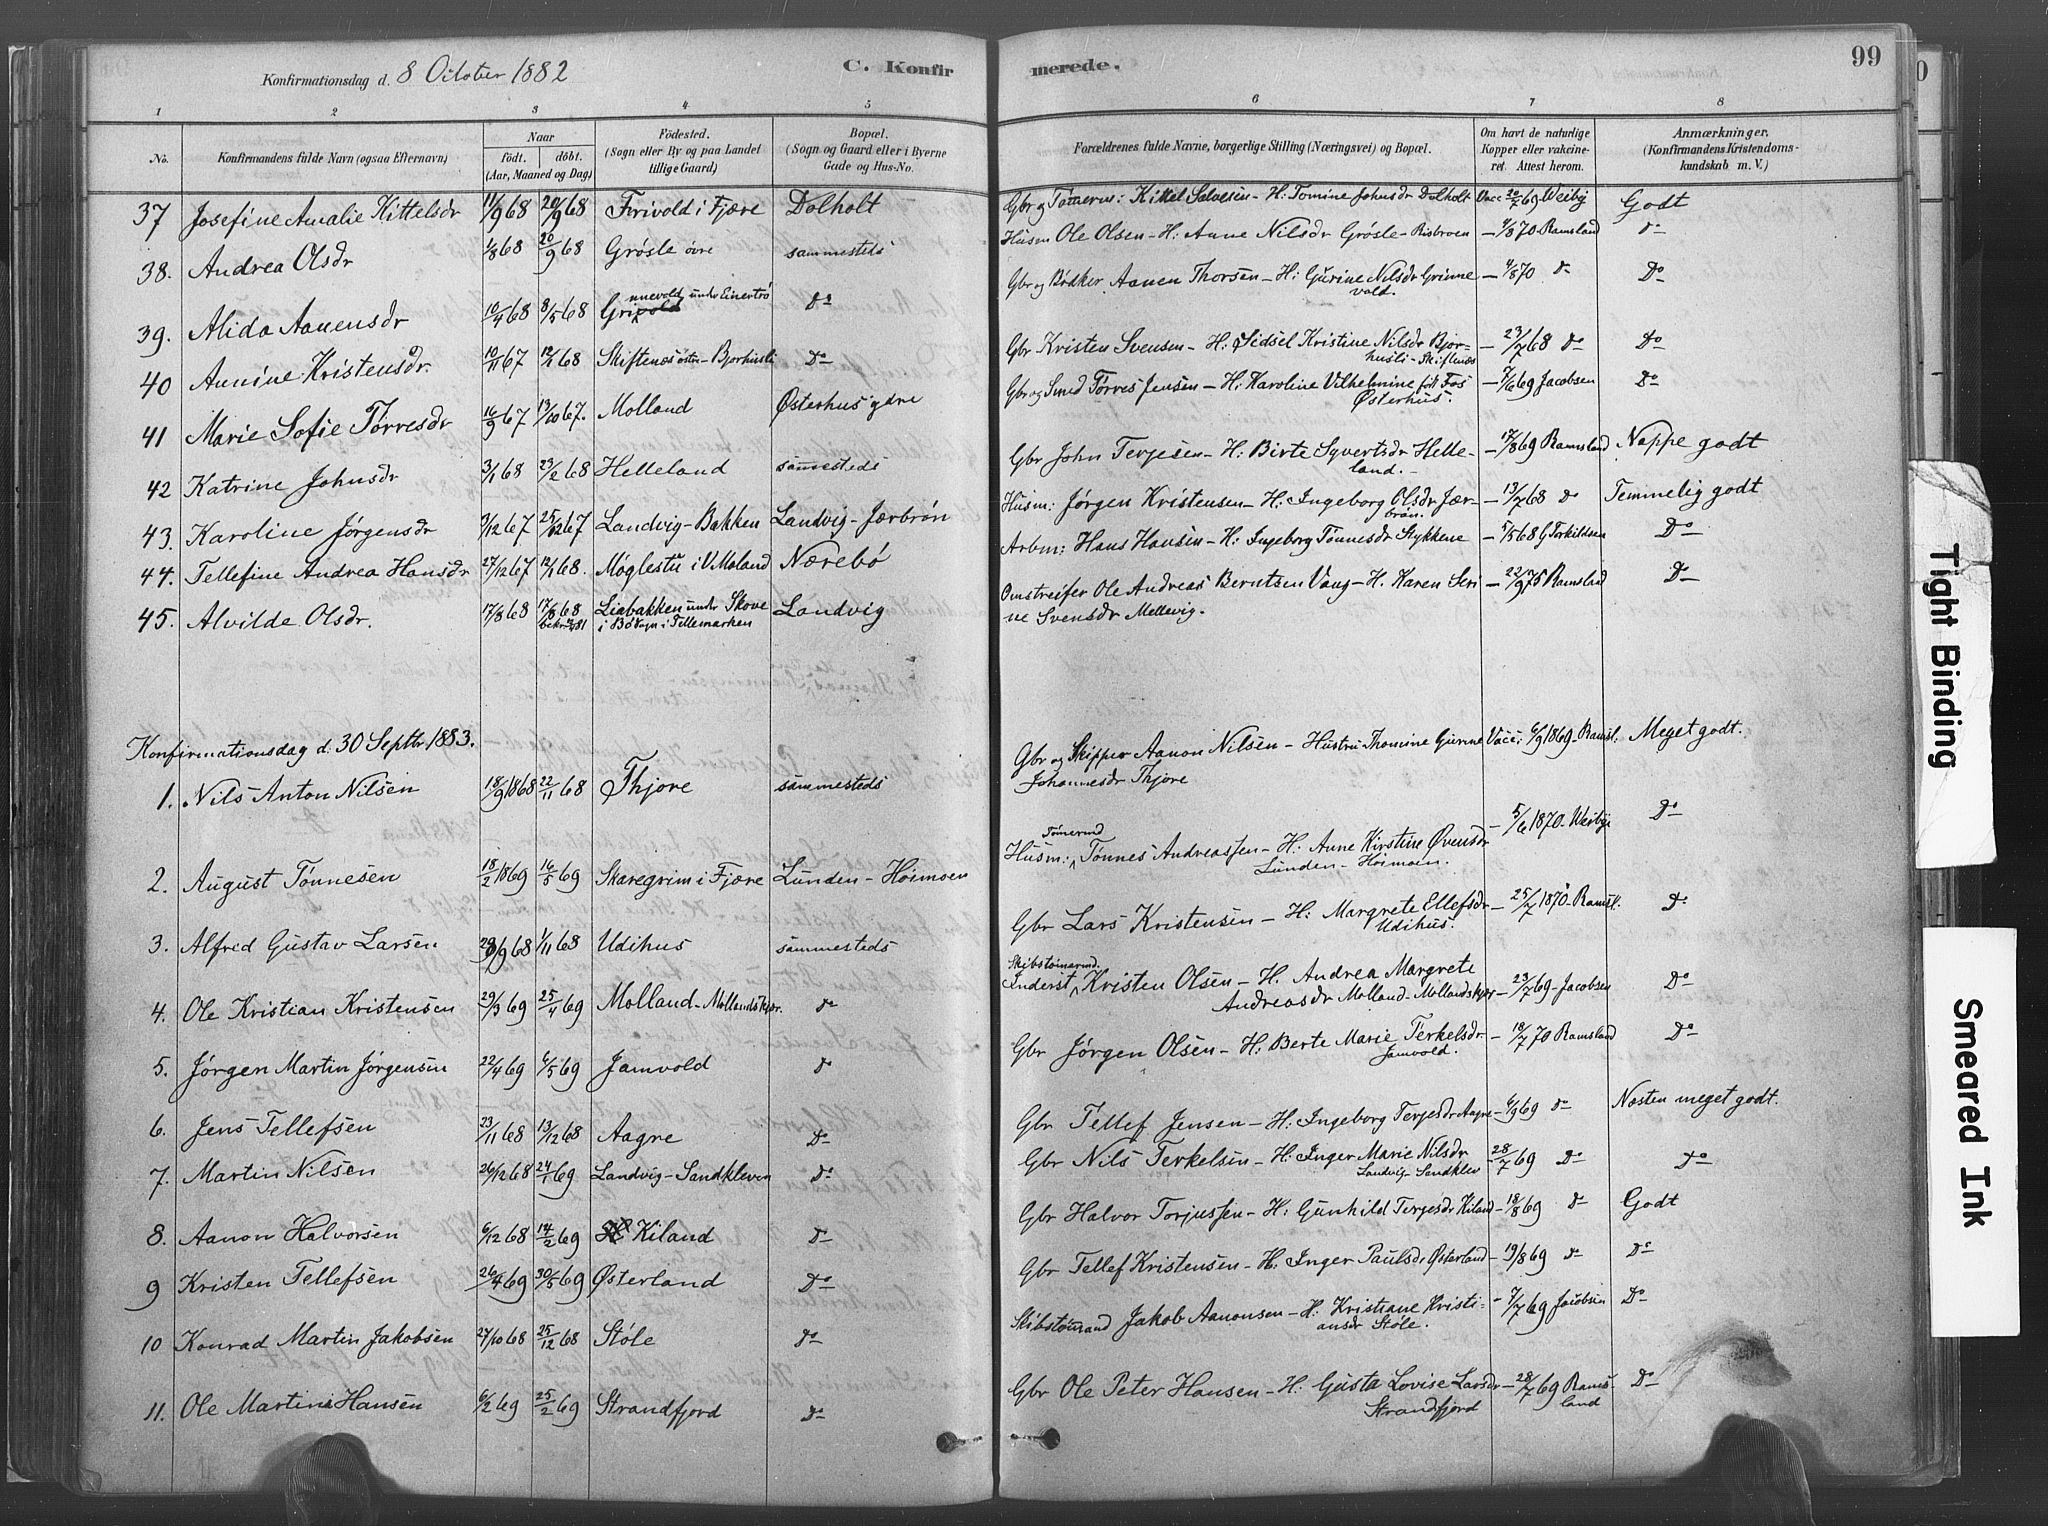 99
C. Konfirmerede.
Konfirmationsdag d. 8 October 1882
1 2 3 4 5 6 7 8
No. Konfirmandens fulde Navn (ogsaa Efternavn) Naar født. døbt. (Aar, Maaned og Dag) Fødested. (Sogn eller By og paa Landet tillige Gaard) Bopæl. (Sogn og Gaard eller i Byerne Gade og Hus-No. Forældrenes fulde Navne, borgerlige Stilling (Næringsvei) og Bopæl. Om havt de naturlige Kopper eller vaccineret. Attest herom. Anmærkninger. (Konfirmandens Kristendomskundskab m. V.)
37 Josefine Amalie Kittelsdr 11/9 68 20/9 68 Frivold i Fjære Dolholt Gbr og Tømerm: Kittel Salvesen - H: Tomine Johnsdr Dolholt Vacc 20/7 69 Weiby Godt
38. Andrea Olsdr 1/8 68 20/9 68 Grøsle øvre sammesteds Husm Ole Olsen - H: Anne Nilsdr Grøsle - Risbroen - 4/8 70 Ramsland do
39. Alida Aanensdr 10/4 68 8/5 68 Grinnevold under Einertrø Do Gbr og Bødker Aanen Thorsen - H: Gurine Nilsdr Grinnevold. - 4/8 70 do Do
40 Annine Kristensdr 10/11 67 12/1 68 Skiftenes østre - Bjorhusli Do Gbr Kristen Svensen - H: Sidsel Kristine Nilsdr Bjorhusli - Skiftenes - 23/7 68 do Do
41 Marie Sofie Tørresdr 16/9 67 13/10 67. Molland Østerhus ydre Gbr og Smed Tørres Jensen - H: Karoline Vilhelmine født Fos Østerhus. - 7/6 69 Jacobsen Do
42 Katrine Johnsdr 3/1 68 23/2 68 Helleland sammesteds Gbr John Terjesen - H: Birte Syvertsdr Helleland. - 17/8 69 Ramsland Nappe godt
43. Karoline Jørgensdr 3/12 67 25/12 67 Landvig - Bakken Landvig - Jærbrøn Husm: Jørgen Kristensen - H: Ingeborg Olsdr Jærbrøn. - 13/7 68 do Temmelig godt
44. Tellefine Andrea Hansdr 27/12 67 12/1 68. Møglestu i V. Moland Nærebø Arbm: Hans Hansen - H: Ingeborg Tønnesdr Stykkene - 5/5 68 G Torkildsen Do
45. Alvilde Olsdr. 17/8 68 17/8 68 Liabakken under Skove i Bø Sogn i Tellemarken Landvig Omstreifer Ole Andreas Berntsen Vang - H. Karen Serine Svensdr Mellevig. - 22/9 75 Ramsland Do
Konfirmationsdag d. 30 Septbr 1883.
1. Nils Anton Nilsen 18/9 1868 22/11 68 Thjore sammesteds Gbr og Skipper Aanon Nilsen - Hustru Thomine Gurine Johannesdr Thjore Vacc: 6/9 1869 - Ramsl. Meget godt.
2. August Tønnesen 18/2 1869 16/5 69 Skaregrim i Fjære Lunden - Høimoen Husm: Tømermd Tønnes Andreassen - H: Anne Kirstine Øvensdr Lunden - Høimoen. - 5/6 1870 - Weibye Do
3. Alfred Gustav Larsen 29/9 68 1/11 68 Udihus sammesteds Gbr Lars Kristensen - H: Margrete Ellefsdr Udihus. - 25/7 1870 - Ramsl. Do
4. Ole Kristian Kristensen 29/3 69 25/4 69 Molland - Mollandskjær. do Inderst Skibstømermd. Kristen Olsen - H. Andrea Margrete Andreasdr Molland - Mollandskjær - 23/7 69 - Jacobsen Do
5. Jørgen Martin Jørgensen 22/4 69 6/5 69 Jamvold do Gbr Jørgen Olsen - H: Berte Marie Terkelsdr. Jamvold. - 18/7 70 Ramsland Do
6. Jens Tellefsen 23/11 68 13/12 68 Aagre Do Gbr Tellef Jensen - H: Ingeborg Terjesdr Aagre - 6/9 69 do Næsten meget godt.
7. Martin Nilsen 26/12 68 24/1 69 Landvig - Sandkleven Do Gbr Nils Terkelsen - H: Inger Marie Nilsdr Landvig - Sandklev - 28/7 69 Do Do
8. Aanon Halvorsen 6/12 68 14/2 69 Kiland Do Gbr Halvor Torjussen - H: Gunhild Terjesdr Kiland - 18/8 69 do Godt
9 Kristen Tellefsen 26/4 69 30/5 69 Østerland Do Gbr Tellef Kristensen - H: Inger Paulsdr Østerland - 19/8 69 do Do
10 Konrad Martin Jakobsen 27/10 68 25/12 68 Støle Do Skibstømmand Jakob Aanonsen - H: Kristiane Kristiansdr Støle. - 7/7 69 Jacobsen Do
11. Ole Martin Hansen 6/2 69 25/2 69 Strandfjord Do Gbr Ole Peter Hansen - H: Gusta Lovise Larsdr Strandfjord - 28/7 69 Ramsland Do
Tight Binding
Smeared Ink